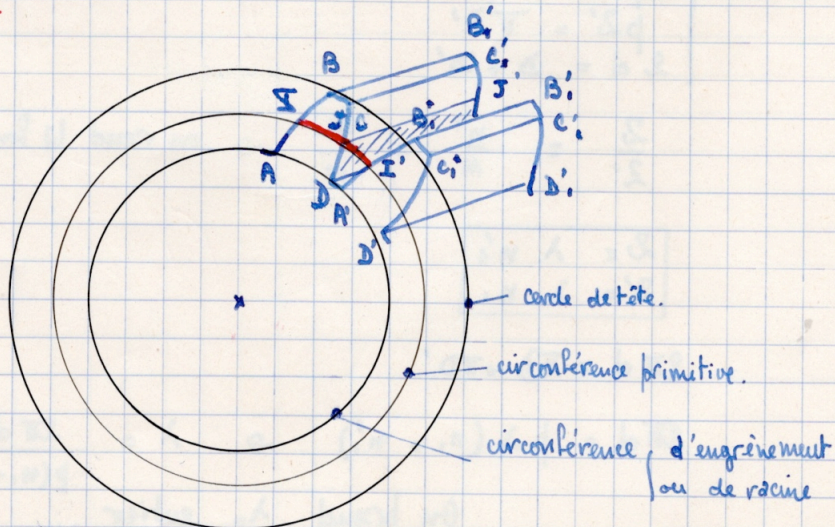 B'₁
B
C'₁
I
J'
B'₁
J
C
B₁"
C'₁
A
I'
C₁"
D
D'₁
A'
D'
cercle de tête.
circonférence primitive.
circonférence { d'engrènement
ou de racine